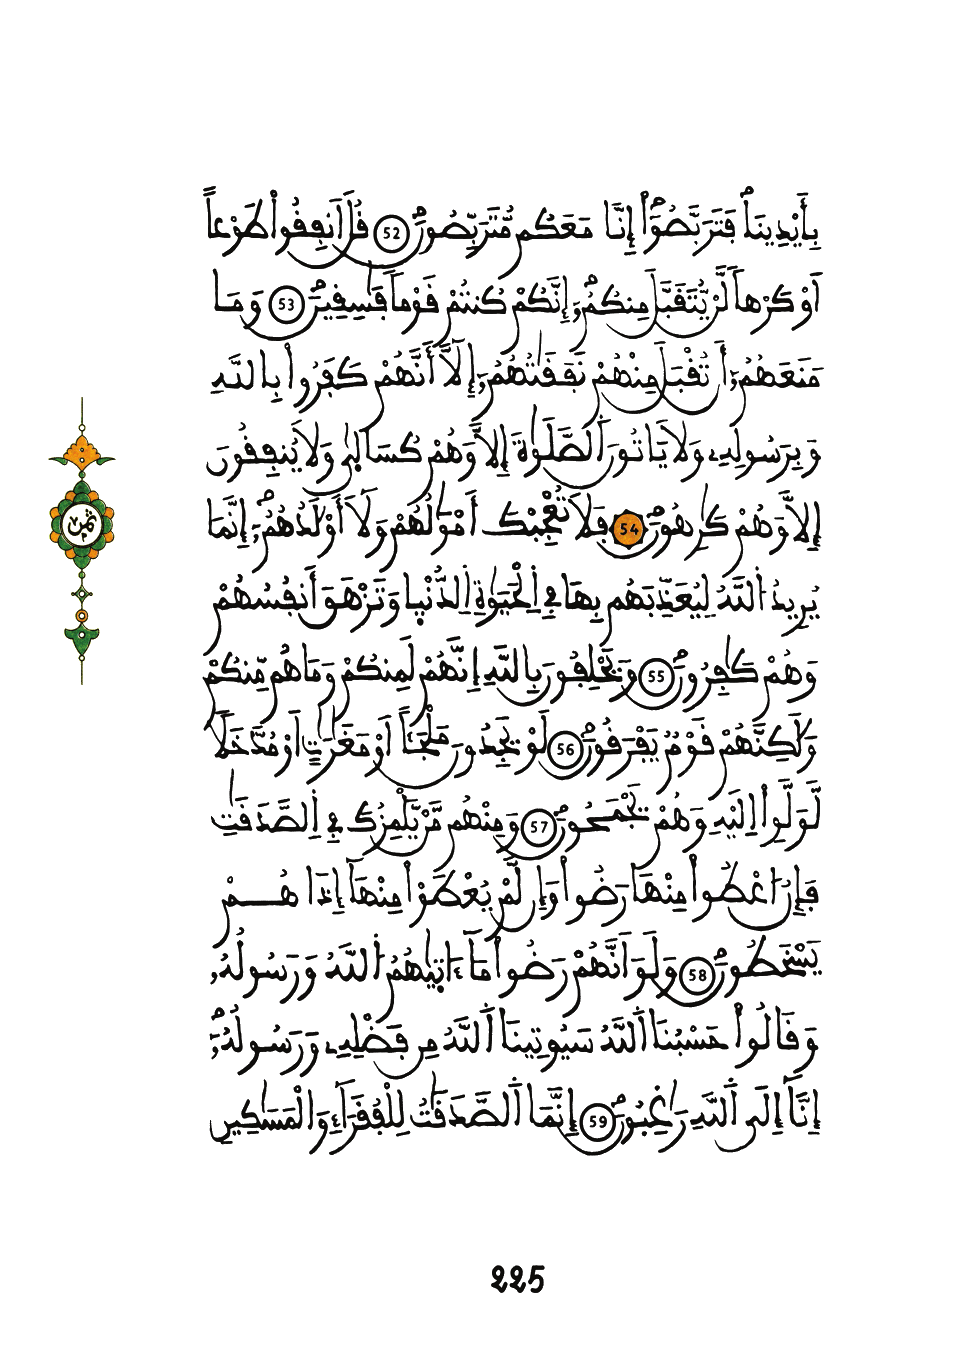 بِأَيْدِينَا فَتَرَبَّصُوٓاْ إِنَّا مَعَكُم مُّتَرَبِّصُونَ 52 قُلَ اَنفِقُواْ طَوْعاً
اَوْ كَرْهاً لَّنْ يُّتَقَبَّلَ مِنكُمُۥٓ إِنَّكُمْ كُنتُمْ قَوْماً فَٰسِقِينَ 53 وَمَا
مَنَعَهُمُۥٓ أَن تُقْبَلَ مِنْهُمْ نَفَقَٰتُهُمُۥٓ إِلَّآ أَنَّهُمْ كَفَرُواْ بِاللَّهِ
وَبِرَسُولِهِۦ وَلَا يَاتُونَ اَ۬لصَّلَوٰةَ إِلَّا وَهُمْ كُسَالَىٰ وَلَا يُنفِقُونَ
إِلَّا وَهُمْ كَٰرِهُونَ 54 فَلَا تُعْجِبْكَ أَمْوَٰلُهُمْ وَلَآ أَوْلَٰدُهُمُۥٓ إِنَّمَا
يُرِيدُ اُ۬للَّهُ لِيُعَذِّبَهُم بِهَا فِے اِ۬لْحَيَوٰةِ اِ۬لدُّنْي۪ا وَتَزْهَقَ أَنفُسُهُمْ
وَهُمْ كَٰفِرُونَ 55 وَيَحْلِفُونَ بِاللَّهِ إِنَّهُمْ لَمِنكُمْ وَمَا هُم مِّنكُمْ
وَلَٰكِنَّهُمْ قَوْمٌ يَفْرَقُونَ 56 لَوْ يَجِدُونَ مَلْجَـٔاً اَوْ مَغَٰرَٰتٍ اَوْ مُدَّخَلاً
لَّوَلَّوِاْ اِلَيْهِ وَهُمْ يَجْمَحُونَ 57 وَمِنْهُم مَّنْ يَّلْمِزُكَ فِے اِ۬لصَّدَقَٰتِ
فَإِنُ ا۟عْطُواْ مِنْهَا رَضُواْ وَإِن لَّمْ يُعْطَوْاْ مِنْهَآ إِذَا هُمْ
يَسْخَطُونَ 58 وَلَوَ اَنَّهُمْ رَضُواْ مَآ ءَات۪يٰهُمُ اُ۬للَّهُ وَرَسُولُهُۥ
وَقَالُواْ حَسْبُنَا اَ۬للَّهُ سَيُوتِينَا اَ۬للَّهُ مِن فَضْلِهِۦ وَرَسُولُهُۥٓ
إِنَّآ إِلَى اَ۬للَّهِ رَٰغِبُونَ 59 إِنَّمَا اَ۬لصَّدَقَٰتُ لِلْفُقَرَآءِ وَالْمَسَٰكِينِ
ثمن
225